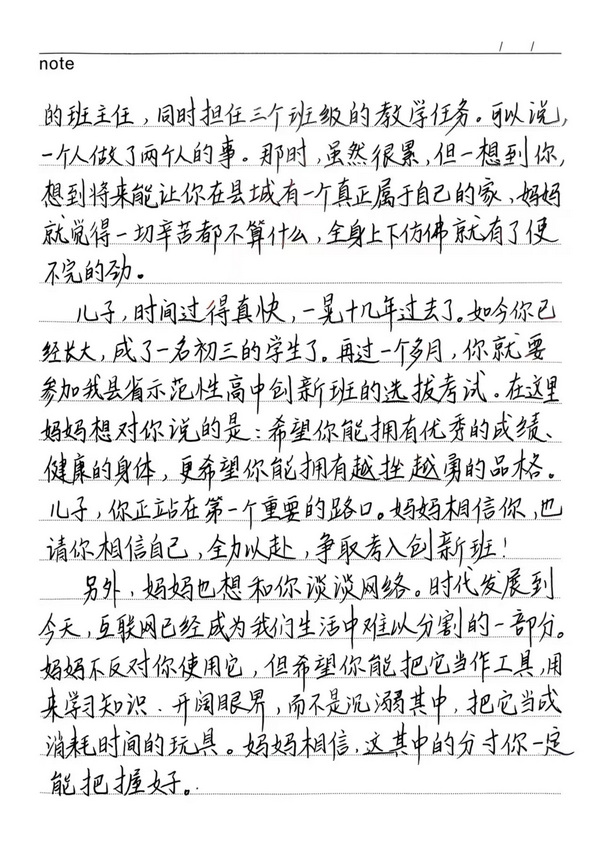 / /
note
的班主任，同时担任三个班级的教学任务。可以说，
一个人做了两个人的事。那时，虽然很累，但一想到你，
想到将来能让你在县城有一个真正属于自己的家、妈妈
就觉得一切辛苦都不算什么，全身上下仿佛就有了使
不完的劲。
儿子，时间过得真快，一晃十几年过去了。如今你已
经长大，成了一名初三的学生了。再过一个多月，你就要
参加我县省示范性高中创新班的选拔考试。在这里
妈妈想对你说的是：希望你能拥有优秀的成绩、
健康的身体，更希望你能拥有越挫越勇的品格。
儿子，你正站在第一个重要的路口。妈妈相信你，也
请你相信自己，全力以赴，争取考入创新班！
另外，妈妈也想和你谈谈网络。时代发展到
今天，互联网已经成为我们生活中难以分割的一部分。
妈妈不反对你使用它，但希望你能把它当作工具，用
来学习知识、开阔眼界，而不是沉溺其中，把它当成
消耗时间的玩具。妈妈相信，这其中的分寸你一定
能把握好。